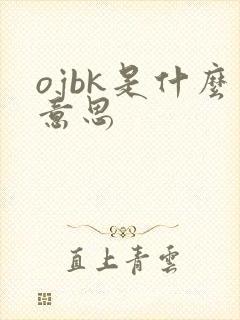 ojbk是什麼
意思
直上青雲